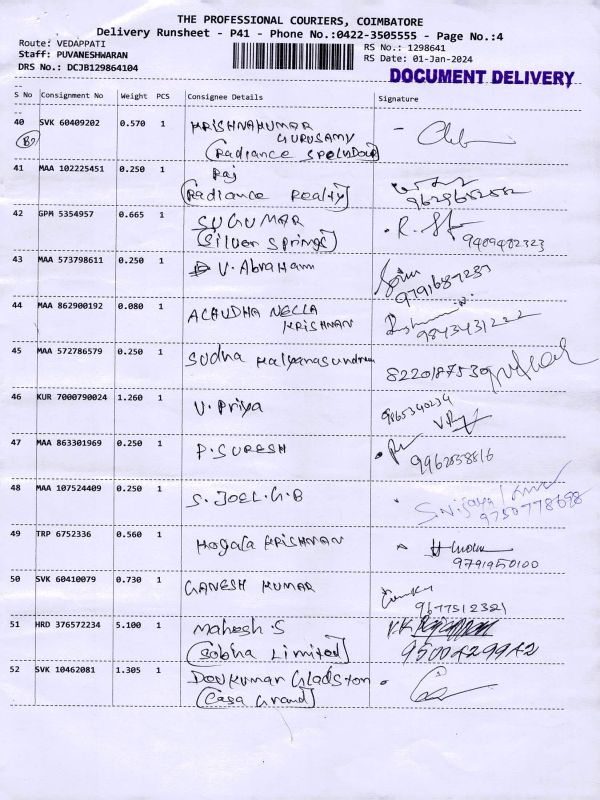 THE PROFESSIONAL COURIERS, COIMBATORE
Delivery Runsheet - P41 - Phone No.:0422-3505555 - Page No.:4
Route: VEDAPPATI RS No.: 1298641
Staff: PUVANESHWARAN RS Date: 01-Jan-2024
DRS No.: DCJB129864104
DOCUMENT DELIVERY
S No Consignment No Weight PCS Consignee Details Signature
40 SVK 60409202 0.570 1 KRISHNAKUMAR
GURUSAMY
(Radiance Splendour)
41 MAA 102225451 0.250 1 Raj
(Radiance Realty)
42 GPM 5354957 0.665 1 SUGUMAR R.
(Silver Springs) 9489482323
43 MAA 573798611 0.250 1 V. Abraham
9791687237
44 MAA 862900192 0.080 1 NELLA
KRISHNAN
45 MAA 572786579 0.250 1 Sudha Kalyanasundram
8220187530
46 KUR 7000790024 1.260 1 V. Priya 9865340234
47 MAA 863301969 0.250 1 P. SURESH
9962038816
48 MAA 107524409 0.250 1 S. JOEL.G.B
9750778698
49 TRP 6752336 0.560 1 KRISHNAN
9791950100
50 SVK 60410079 0.730 1 GANESH KUMAR
9677512321
51 HRD 376572234 5.100 1 Mahesh S V.K
(Sobha Limited) 9500429942
52 SVK 10462081 1.305 1 Devkumar Gladston
(Casa Grand)